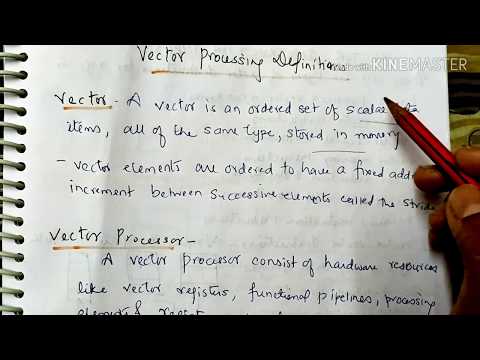 Made with KINEMASTER
Vector Processing Definition
Vector - A vector is an ordered set of
items, all of the same type, stored in memory
- vector elements are ordered to have a fixed
increment between successive elements called the stride
Vector Processor -
A vector processor consist of hardware resources
like vector registers, functional pipelines, processing